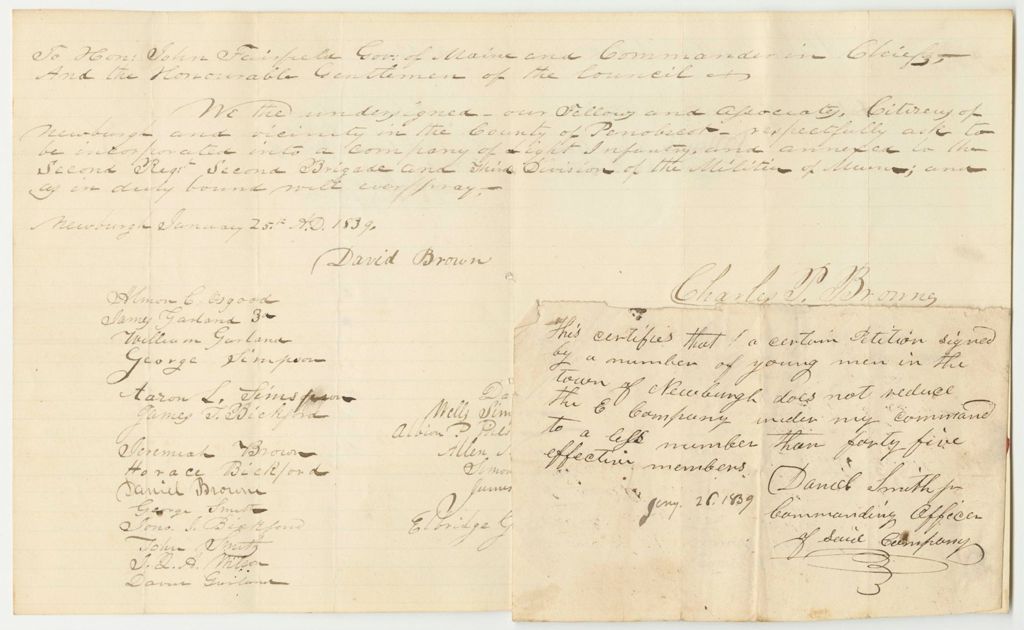 To Hon: John Fairfield Gov: of Maine and Commander in Chief,
And the Honourable Gentlemen of the Council
We the undersigned – our Fellow and Associates, Citizens of
Newburgh and vicinity in the County of Penobscot – respectfully ask to
be incorporated into a company of Light Infantry, and annexed to the
Second Regt Second Brigade and Third Division of the Militia of Maine; and
as in duty bound will ever pray. –
Newburgh January 25th A.D. 1839.
David Brown
Charles P. Browne
Almon C. Osgood
James Garland 3d
William Garland
George Simpson
Aaron L. Simpson
James T. Bickford
Jeremiah Brown
Horace Bickford
Daniel Brown
George Smith
Jono. S. Bickford
John Smith
J. Q. A.
David Garland
Da
Wells Sim
Albion P.
Allen
Simon
James
Eldridge G
This certifies that a certain Petition signed
by a number of young men in the
town of Newburgh does not reduce
the E Company under my command
to a less number than forty five
effective members
Jany. 26. 1839
Daniel Smith jr
Commanding Officer
of said Company